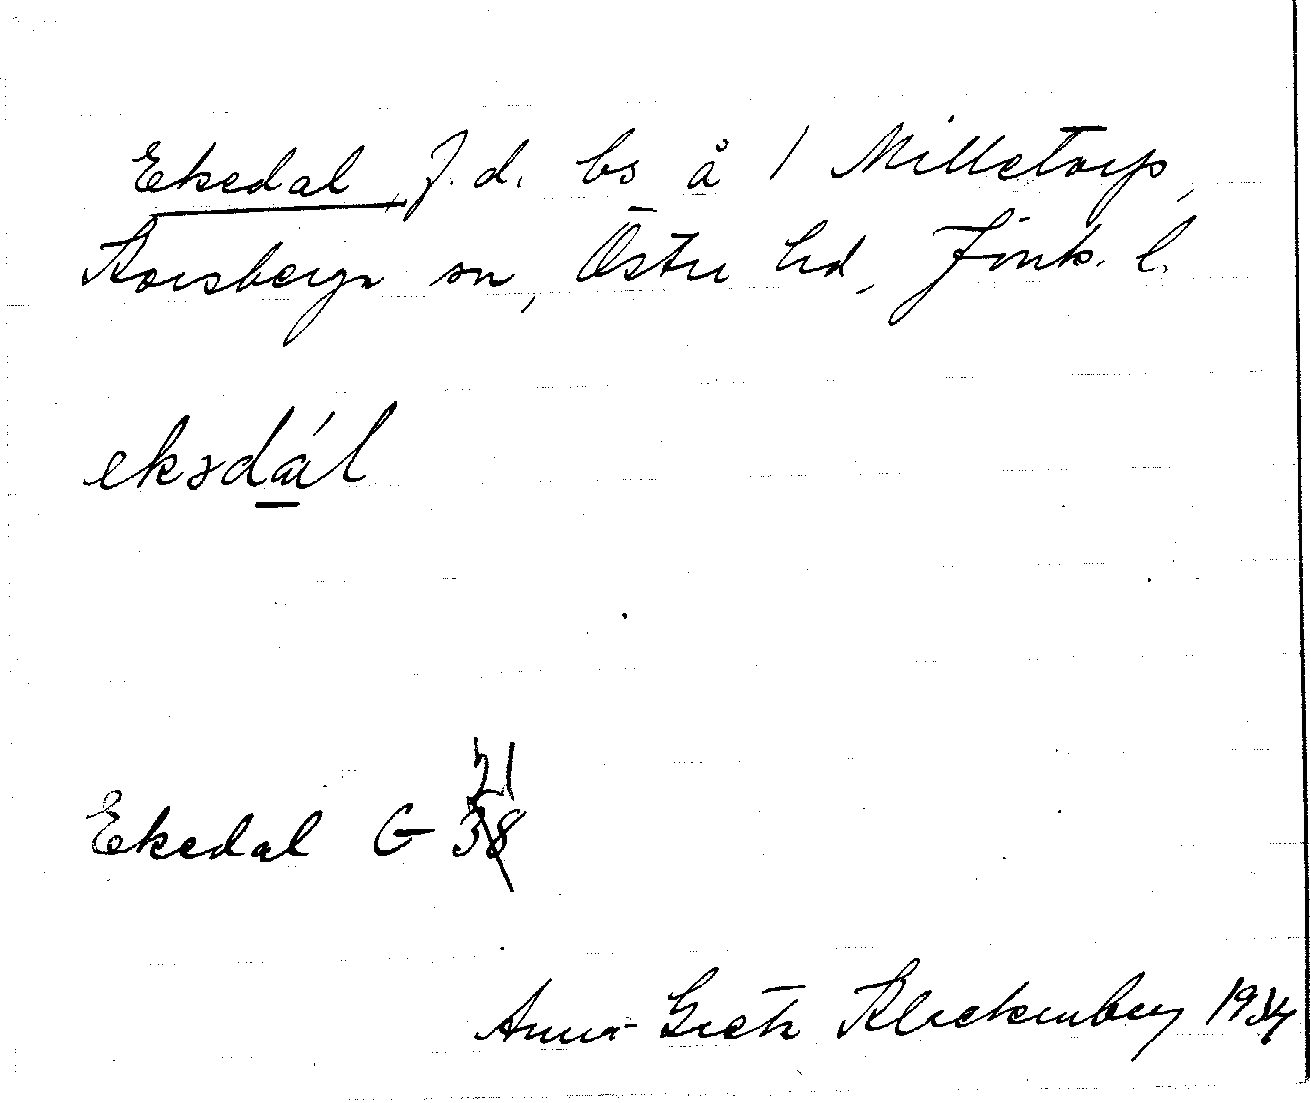 Ekedal f.d. bs å 1 Milletorp,
Korsberga sn, Östra hd, Jönk. l.
ekədál
21
Ekedal G 38
Anna-Greta Kleckenberg 1934